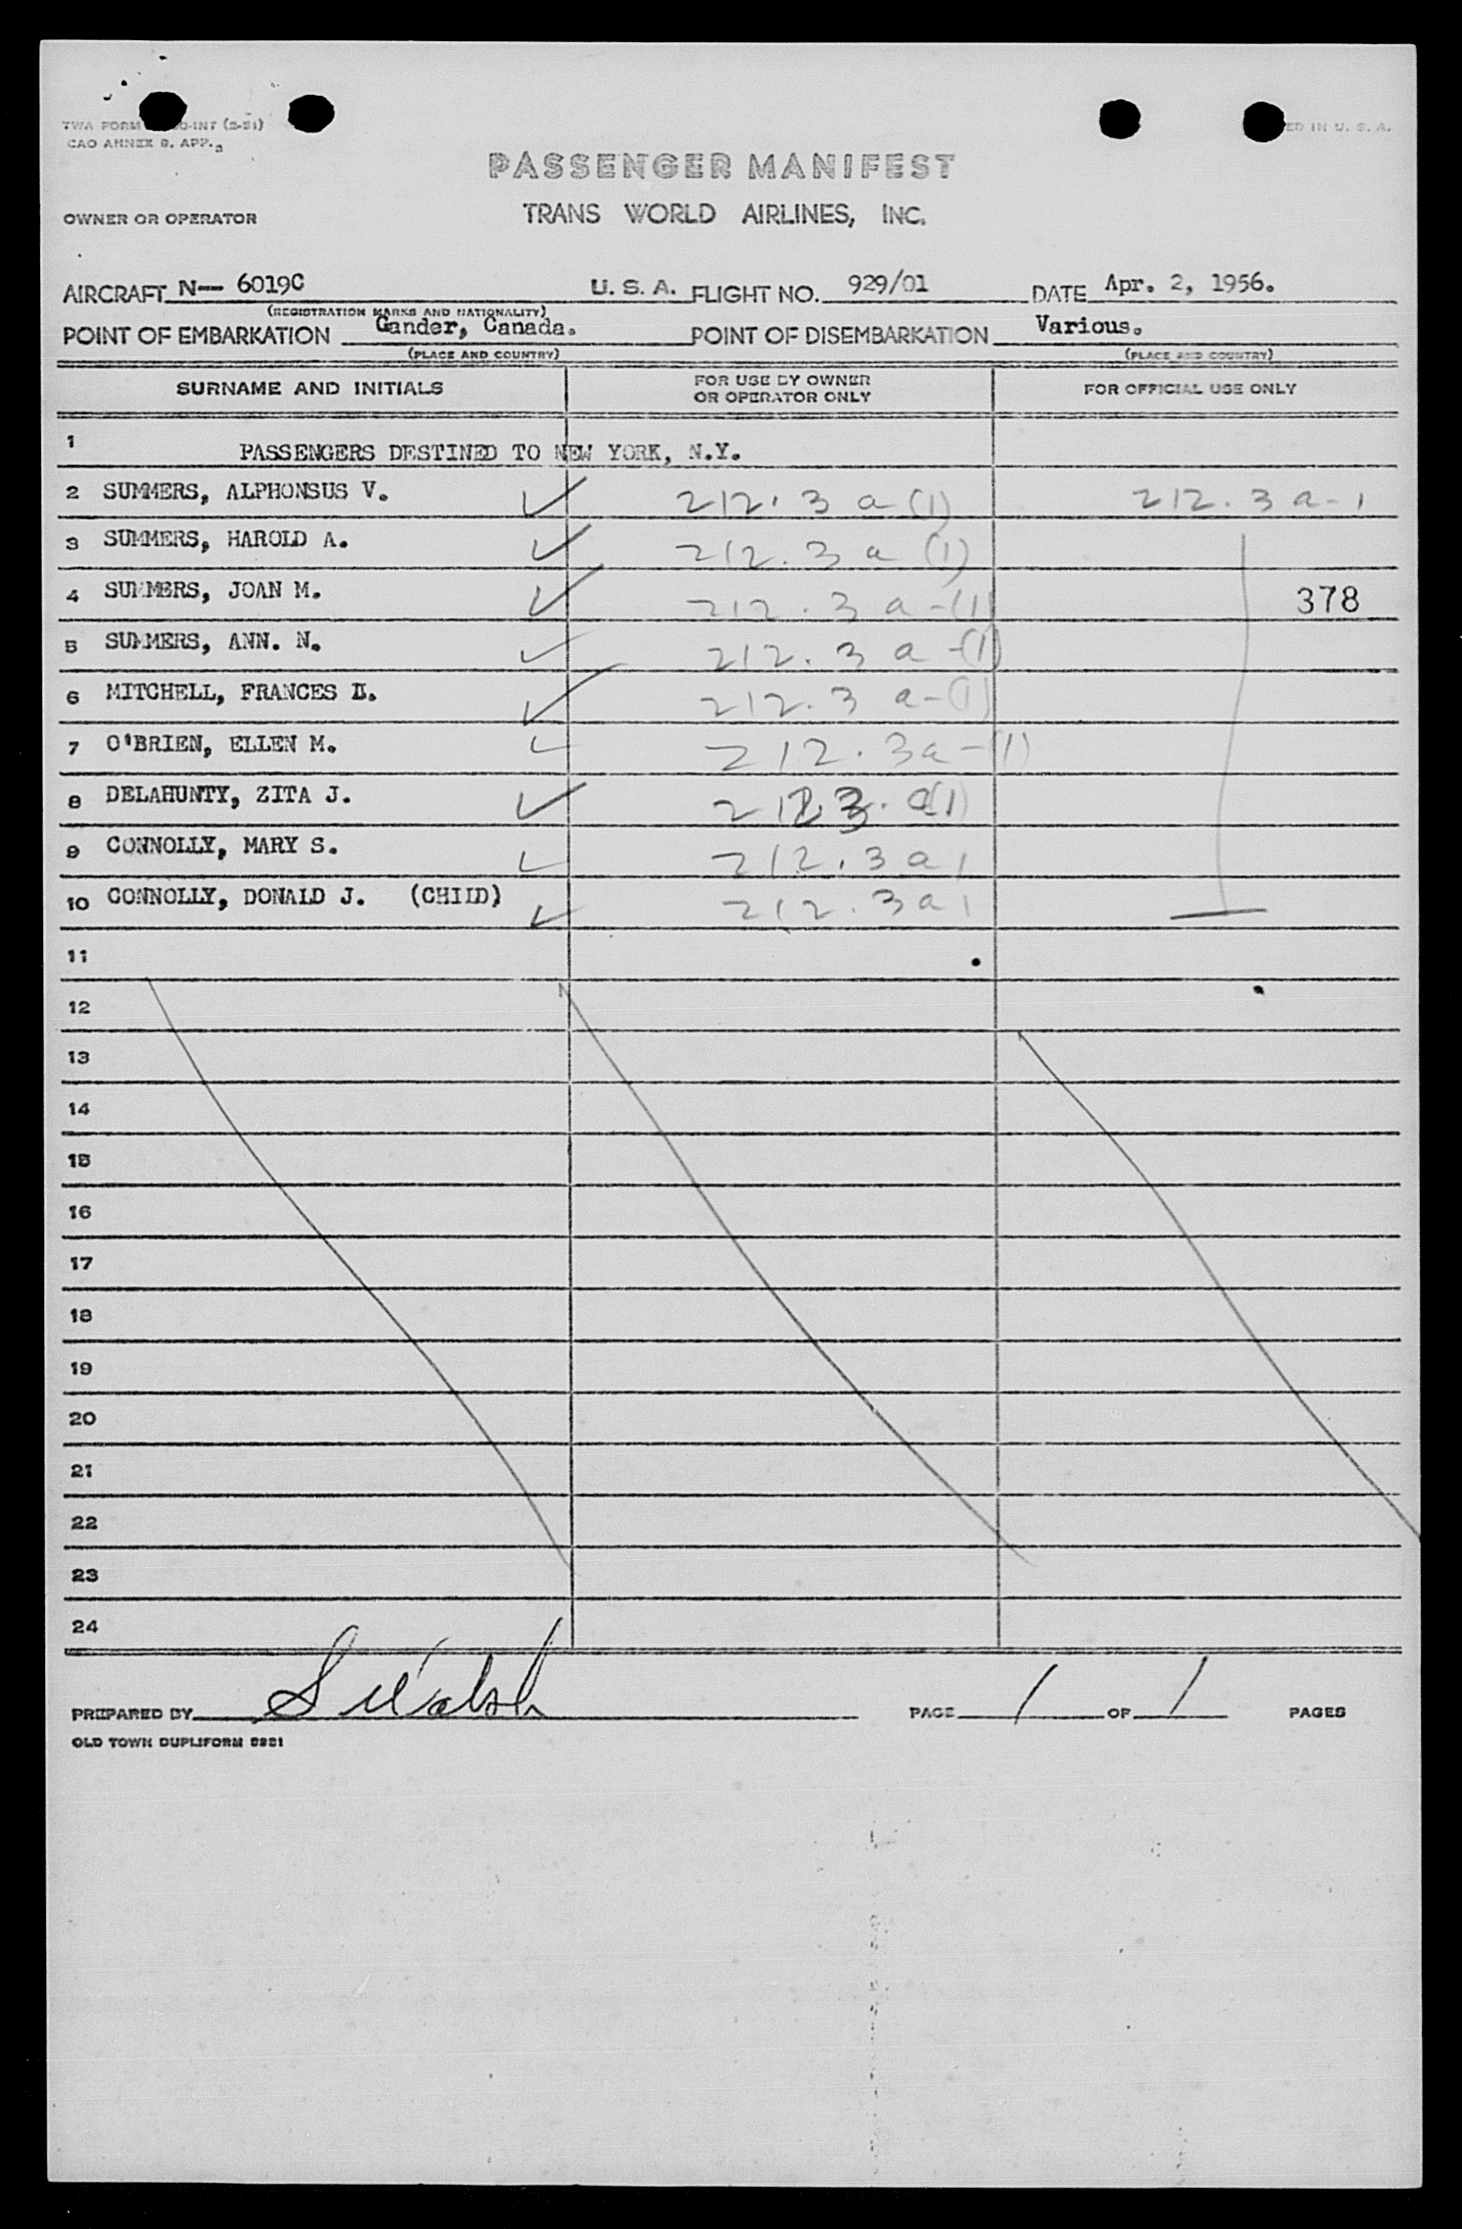 TWA FORM O-INT (2-51)
CAO ANNEX 9, APP. 3
ED IN U. S. A.
PASSENGER MANIFEST
OWNER OR OPERATOR TRANS WORLD AIRLINES, INC.
AIRCRAFT N-- 6019C U. S. A. FLIGHT NO. 929/01 DATE Apr. 2, 1956.
(REGISTRATION MARKS AND NATIONALITY)
POINT OF EMBARKATION Gander, Canada. POINT OF DISEMBARKATION Various.
(PLACE AND COUNTRY) (PLACE AND COUNTRY)
SURNAME AND INITIALS FOR USE BY OWNER OR OPERATOR ONLY FOR OFFICIAL USE ONLY
1 PASSENGERS DESTINED TO NEW YORK, N.Y.
2 SUMMERS, ALPHONSUS V. ✓ 212.3 a-(1) 212.3 a-1
3 SUMMERS, HAROLD A. ✓ 212.3 a (1)
4 SUMMERS, JOAN M. ✓ 212.3 a-(1) 378
5 SUMMERS, ANN. N. ✓ 212.3 a-(1)
6 MITCHELL, FRANCES ✓ 212.3 a-(1)
7 O'BRIEN, ELLEN M. ✓ 212.3a-(1)
8 DELAHUNTY, ZITA J. ✓ 212 3. a(1)
9 CONNOLLY, MARY S. ✓ 212.3 a 1
10 CONNOLLY, DONALD J. (CHILD) ✓ 212.3a 1
11
12
13
14
15
16
17
18
19
20
21
22
23
24
PREPARED BY S Walsh PAGE 1 OF 1 PAGES
OLD TOWN DUPLIFORM